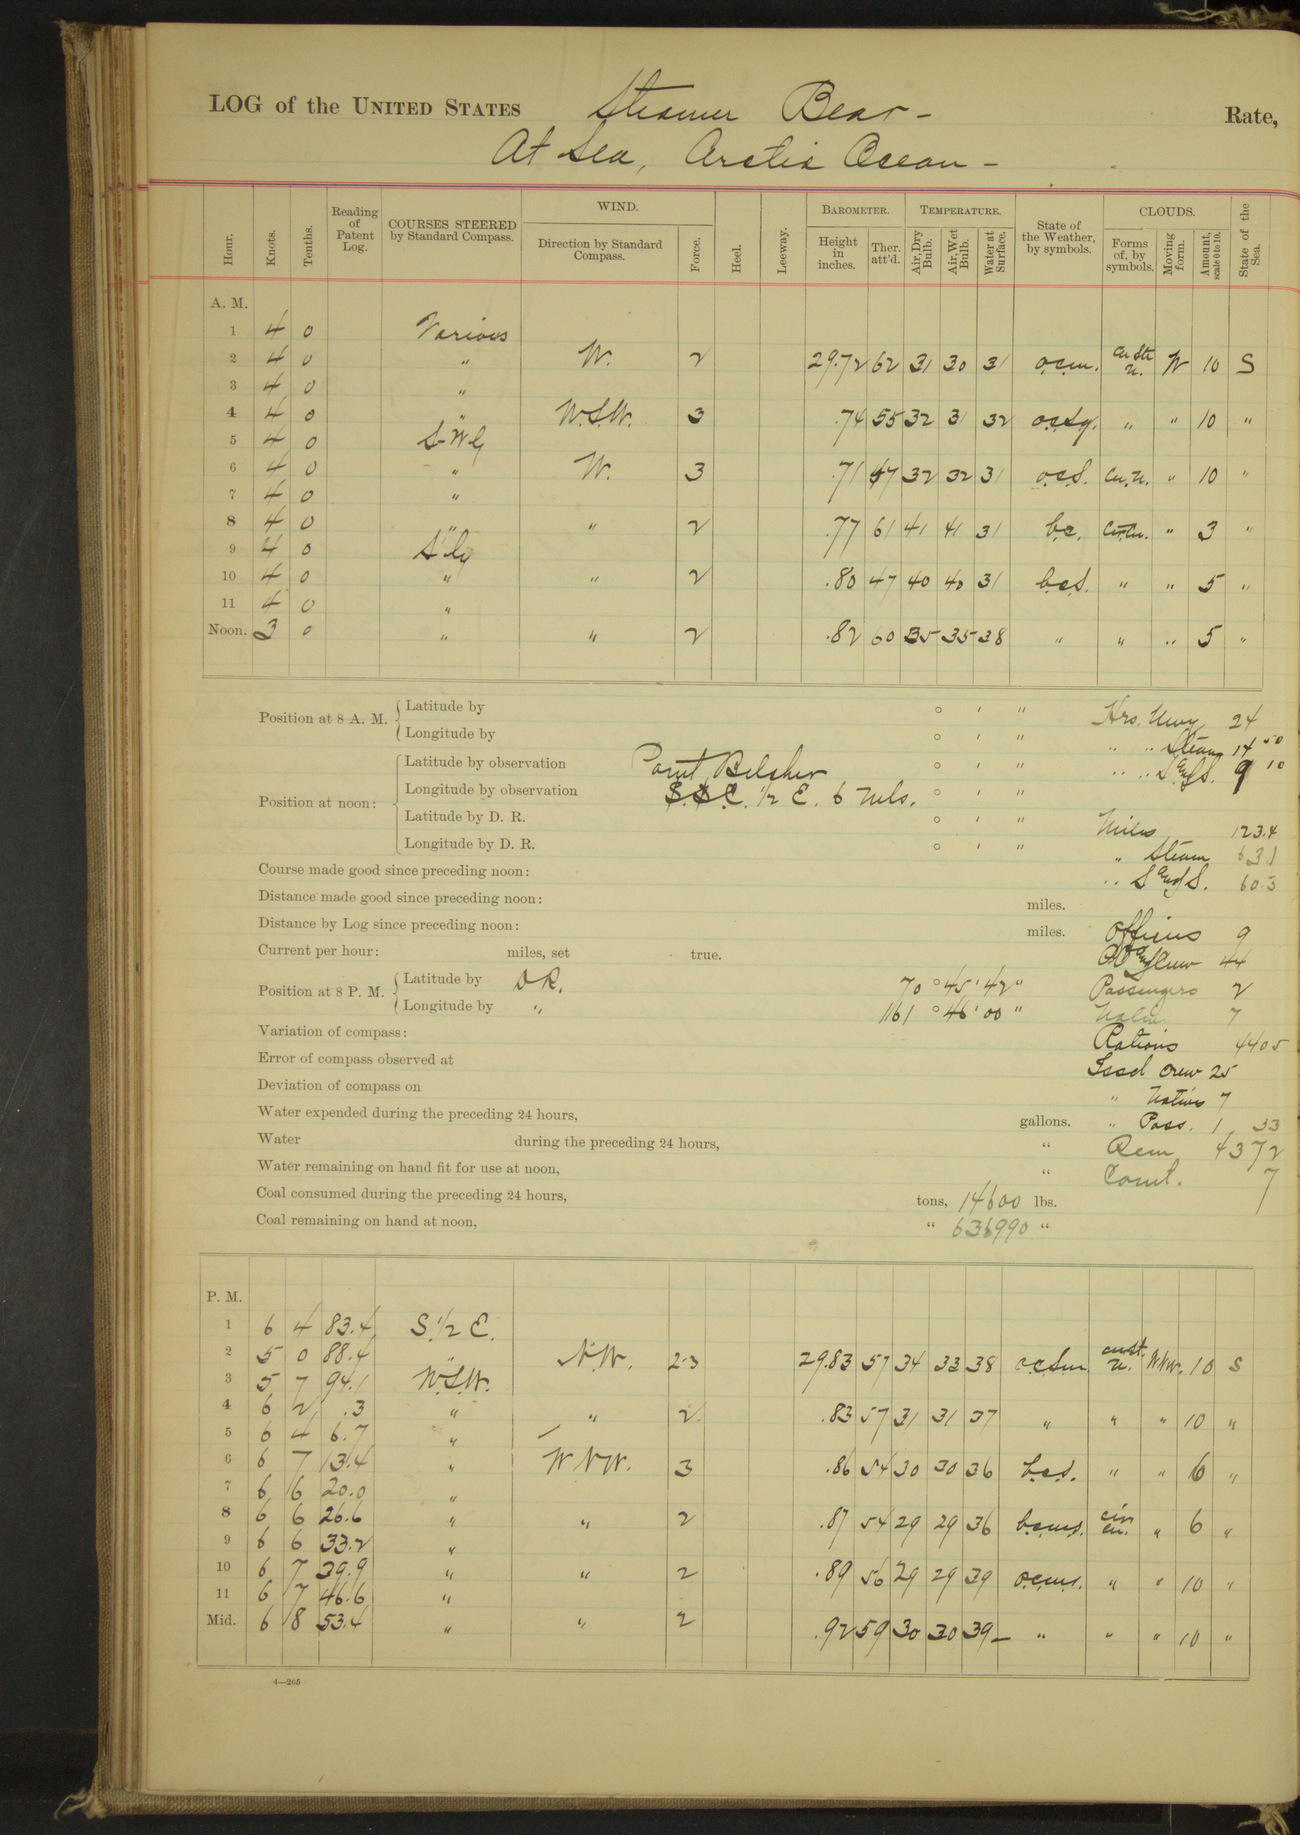 LOG of the UNITED STATES Steamer Bear - Rate,
At Sea, Arctic Ocean -
Hour. Knots. Tenths. Reading of Patent Log. COURSES STEERED by Standard Compass. WIND. Direction by Standard Compass. Force. Heel. Leeway. BAROMETER. Height in inches. Ther. att'd. TEMPERATURE. Air, Dry Bulb. Air, Wet Bulb. Water at Surface. State of the Weather, by symbols. CLOUDS. Forms of, by symbols. Moving form. Amount, scale 0 to 10. State of the Sea.
A. M.
1 4 0 Various
2 4 0 " W. 2 29.72 62 31 30 31 o.c.m. Cu Str n. W 10 S
3 4 0 "
4 4 0 " W.S.W. 3 .74 55 32 31 32 o.c.s.q. " " 10 "
5 4 0 S-W'ly
6 4 0 " W. 3 .71 47 32 32 31 o.c.s. Cu. n. " 10 "
7 4 0 "
8 4 0 " " 2 .77 61 41 41 31 b.c. Cir-Cu. " 3 "
9 4 0 S'ly
10 4 0 " " 2 .80 47 40 40 31 b.c.s. " " 5 "
11 4 0 "
Noon. 3 0 " " 2 .82 60 35 35 38 " " " 5 "
Position at 8 A. M. Latitude by ° ' " Hrs. Nwy 24
Longitude by ° ' " " " Steam 14 50
Position at noon: Latitude by observation Point Belcher ° ' " " " S and S. 9 10
Longitude by observation S.S.E. 1/2 E. 6 mls. ° ' "
Latitude by D. R. ° ' " Miles 123.4
Longitude by D. R. ° ' " " Steam 63.1
Course made good since preceding noon: " S and S. 60.3
Distance made good since preceding noon: miles.
Distance by Log since preceding noon: miles. Officers 9
Current per hour: miles, set true. Crew 44
Position at 8 P. M. Latitude by D.R. 70 ° 45 ' 42 " Passengers 2
Longitude by " 161 ° 46 ' 00 " 7
Variation of compass: Rations 4405
Error of compass observed at Issd Crew 25
Deviation of compass on " Natives 7
Water expended during the preceding 24 hours, gallons. " Pass. 1 33
Water during the preceding 24 hours, " Rem 4372
Water remaining on hand fit for use at noon, " 7
Coal consumed during the preceding 24 hours, tons, 14600 lbs.
Coal remaining on hand at noon, " 636990 "
P. M.
1 6 4 83.4 S. 1/2 E.
2 5 0 88.4 " N.W. 2-3 29.83 57 34 33 38 o.c.s.m. cu st. n. WNW. 10 S
3 5 7 94.1 W.S.W.
4 6 2 .3 " " 2 .83 57 31 31 37 " " " 10 "
5 6 4 6.7 "
6 6 7 13.4 " W NW. 3 .86 54 30 30 36 b.c.s. " " 6 "
7 6 6 20.0 "
8 6 6 26.6 " " 2 .87 54 29 29 36 b.c.m.s. cir cu. " 6 "
9 6 6 33.2 "
10 6 7 39.9 " " 2 .89 56 29 29 39 o.c.m.s. " " 10 "
11 6 7 46.6 "
Mid. 6 8 53.4 " " 2 .92 59 30 30 39 " " " 10 "
4—265